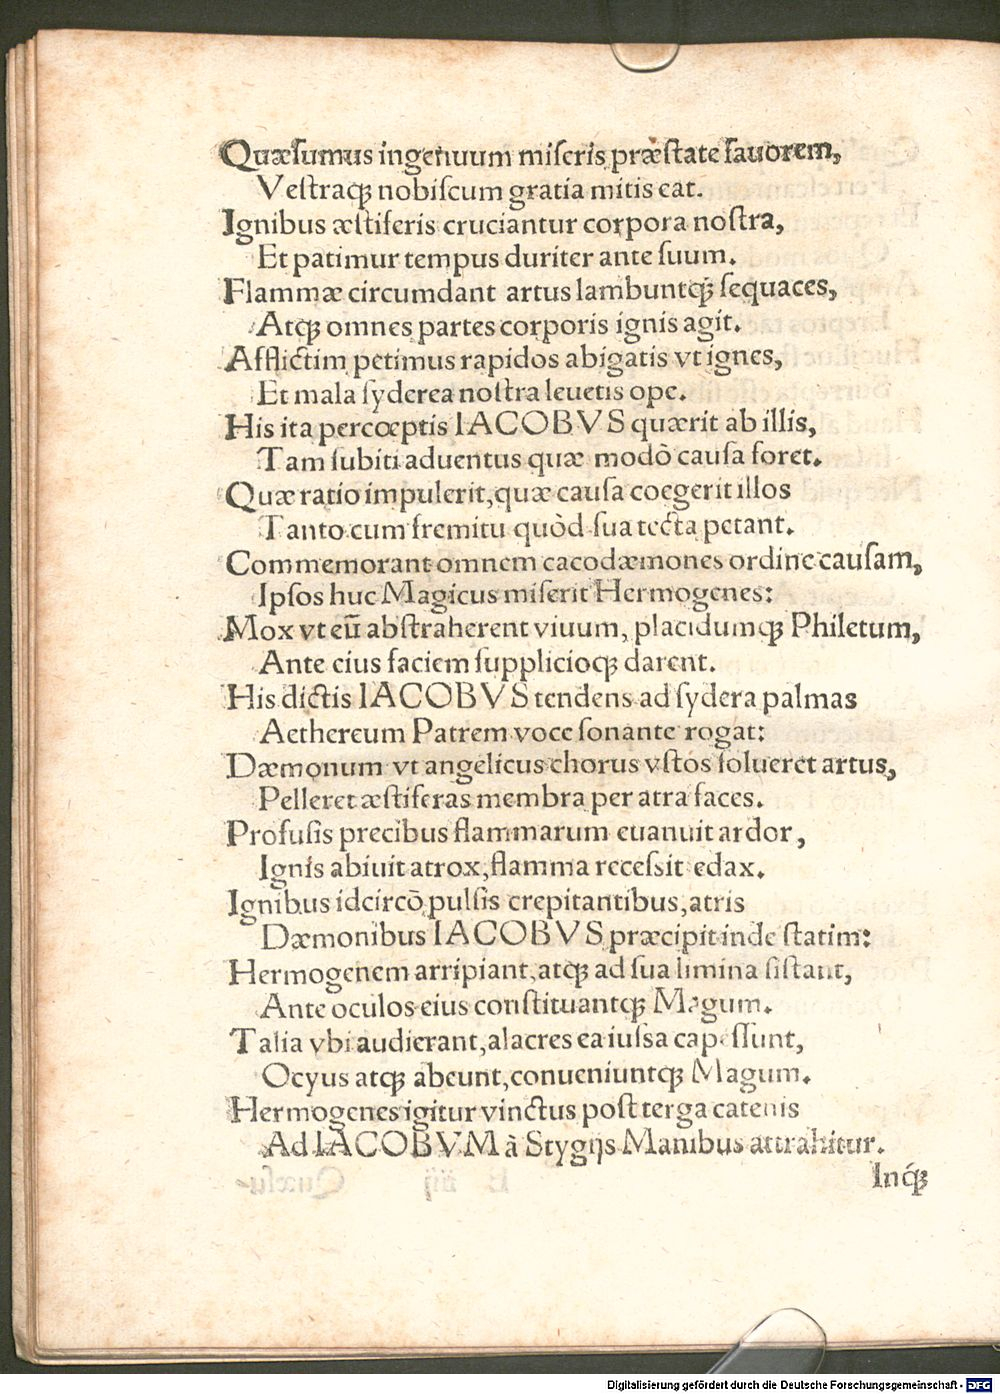 Quæſumus ingenuum miſeris præſtate fauorem,
Veſtraqꝫ nobiſcum gratia mitis eat.
Ignibus æſtiferis cruciantur corpora noſtra,
Et patimur tempus duriter ante ſuum.
Flammæ circumdant artus lambuntqꝫ ſequaces,
Atqꝫ omnes partes corporis ignis agit.
Afflictim petimus rapidos abigatis vt ignes,
Et mala ſyderea noſtra leuetis ope.
His ita percœptis IACOBVS quærit ab illis,
Tam ſubiti aduentus quæ modò cauſa foret.
Quæ ratio impulerit, quæ cauſa coegerit illos
Tanto cum fremitu quòd ſua tecta petant.
Commemorant omnem cacodæmones ordine cauſam,
Ipſos huc Magicus miſerit Hermogenes:
Mox vt eū abſtraherent viuum, placidumqꝫ Philetum,
Ante eius faciem ſupplicioqꝫ darent.
His dictis IACOBVS tendens ad ſydera palmas
Aethereum Patrem voce ſonante rogat:
Dæmonum vt angelicus chorus vſtos ſolueret artus,
Pelleret æſtiferas membra per atra faces.
Profuſis precibus flammarum euanuit ardor,
Ignis abiuit atrox, flamma receſsit edax.
Ignibus idcircō pulſis crepitantibus, atris
Dæmonibus IACOBVS præcipit inde ſtatim:
Hermogenem arripiant, atqꝫ ad ſua limina ſiſtant,
Ante oculos eius conſtituantqꝫ Magum.
Talia vbi audierant, alacres ea iuſsa capeſſunt,
Ocyus atqꝫ abeunt, conueniuntqꝫ Magum.
Hermogenes igitur vinctus poſt terga catenis
Ad IACOBVM à Stygijs Manibus attrahitur.
Inqꝫ́
Digitalisierung gefördert durch die Deutsche Forschungsgemeinschaft - DFG